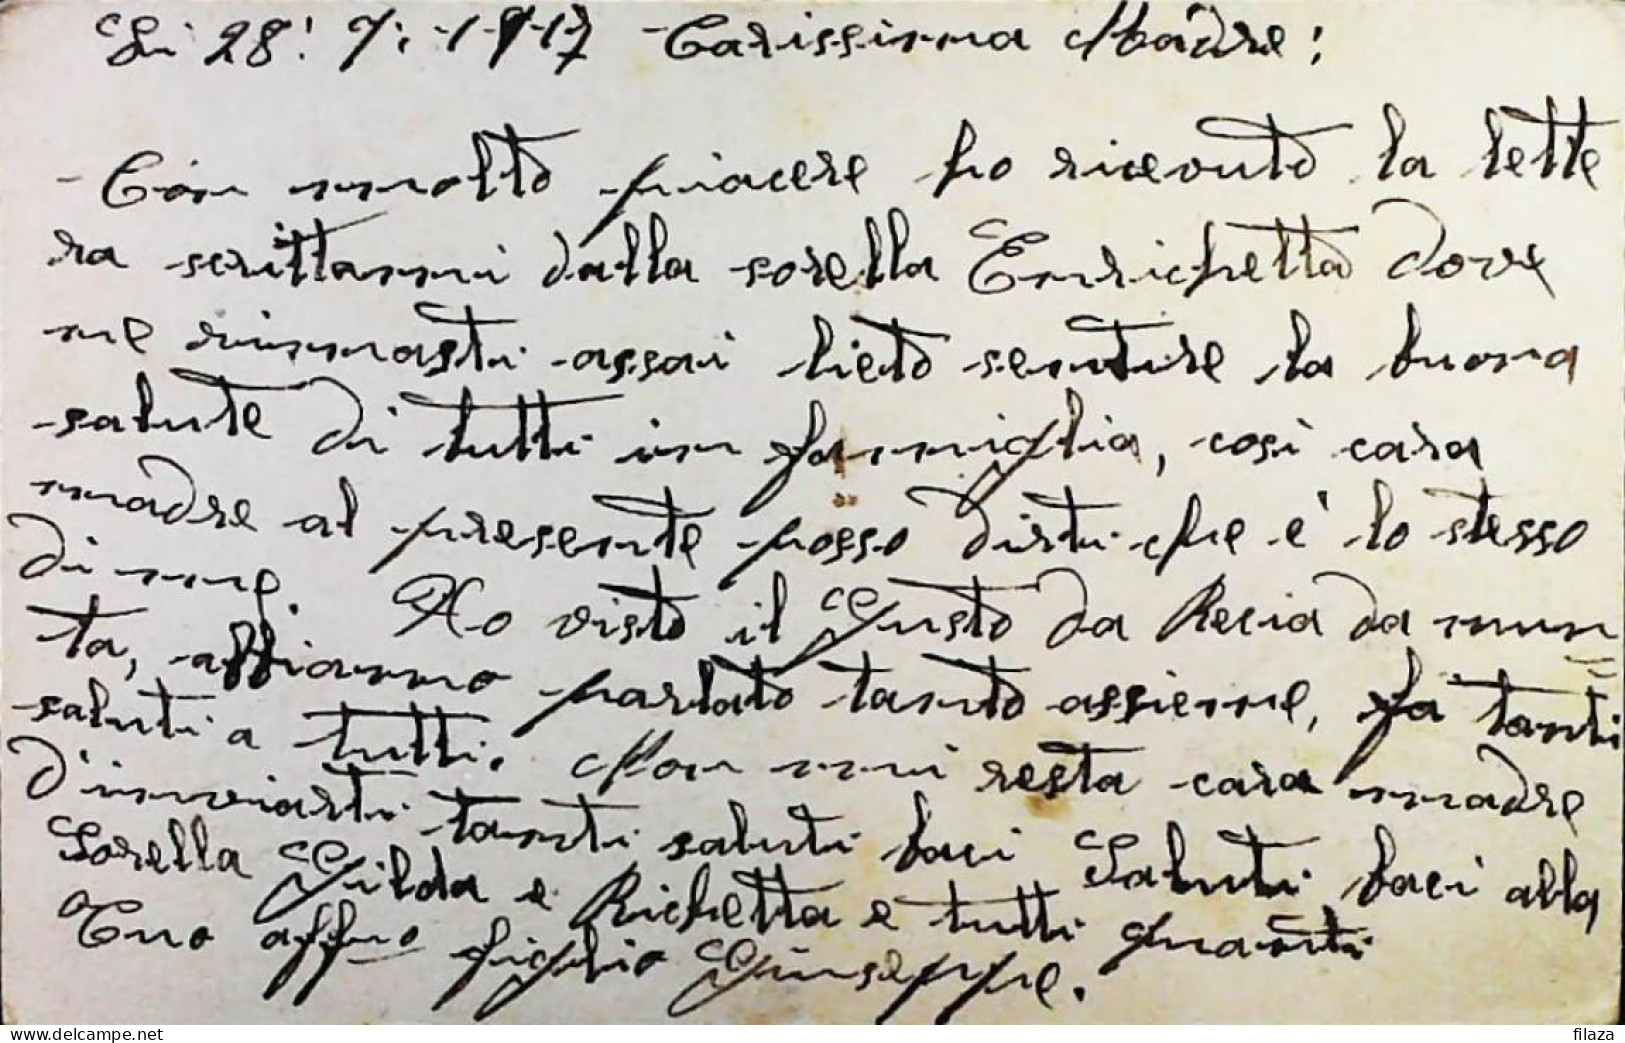 Li 28. 7. 1917 Carissima Madre;
Con molto piacere ho riceuto la lette
ra scrittami dalla sorella Enrichetta dove
ne rimasti assai lieto sentire la buona
salute di tutti in famiglia, cosi cara
madre al presente posso dirti che e' lo stesso
di me. Ho visto il Gusto da Recia da mun
ta, abbiamo parlato tanto assieme, fa tanti
saluti a tutti. Non mi resta cara madre
d'inviarti tanti saluti baci Saluti baci alla
Sorella Gilda e Richetta e tutti quanti
Tuo affmo figlio Giuseppe.
www.delcampe.net
filaza